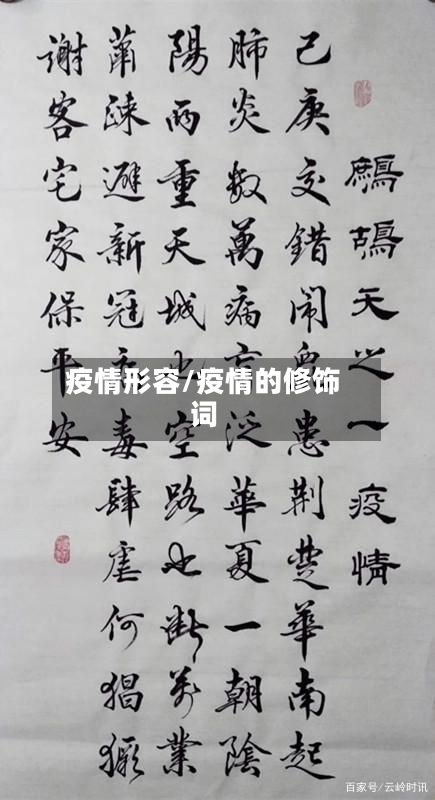 鷓鴣天之一 疫情
己庚交錯鬧患荆楚華南起
肺炎数萬病亡泛華夏一朝陰
陽兩重天城也空路也断萬業
蕭疎避新冠毒肆虐何猖獗
謝客宅家保平安
疫情形容/疫情的修饰
词
百家号/云岭时讯